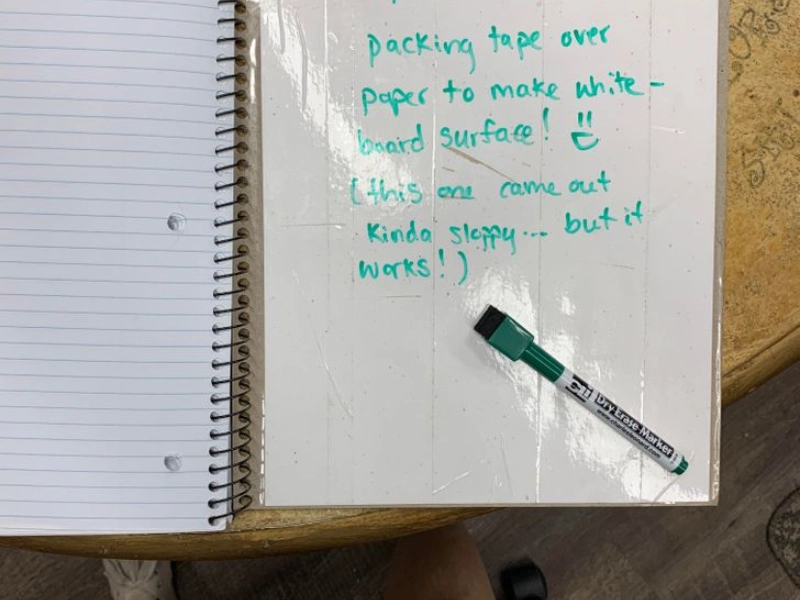 packing tape over
paper to make white-
board surface!
(this one came out
kinda sloppy... but it
works!)
Dry Erase Marker